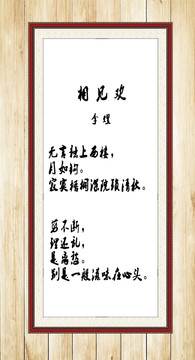 相见欢
李煜
无言独上西楼，
月如钩。
寂寞梧桐深院锁清秋。
剪不断，
理还乱，
是离愁。
别是一般滋味在心头。